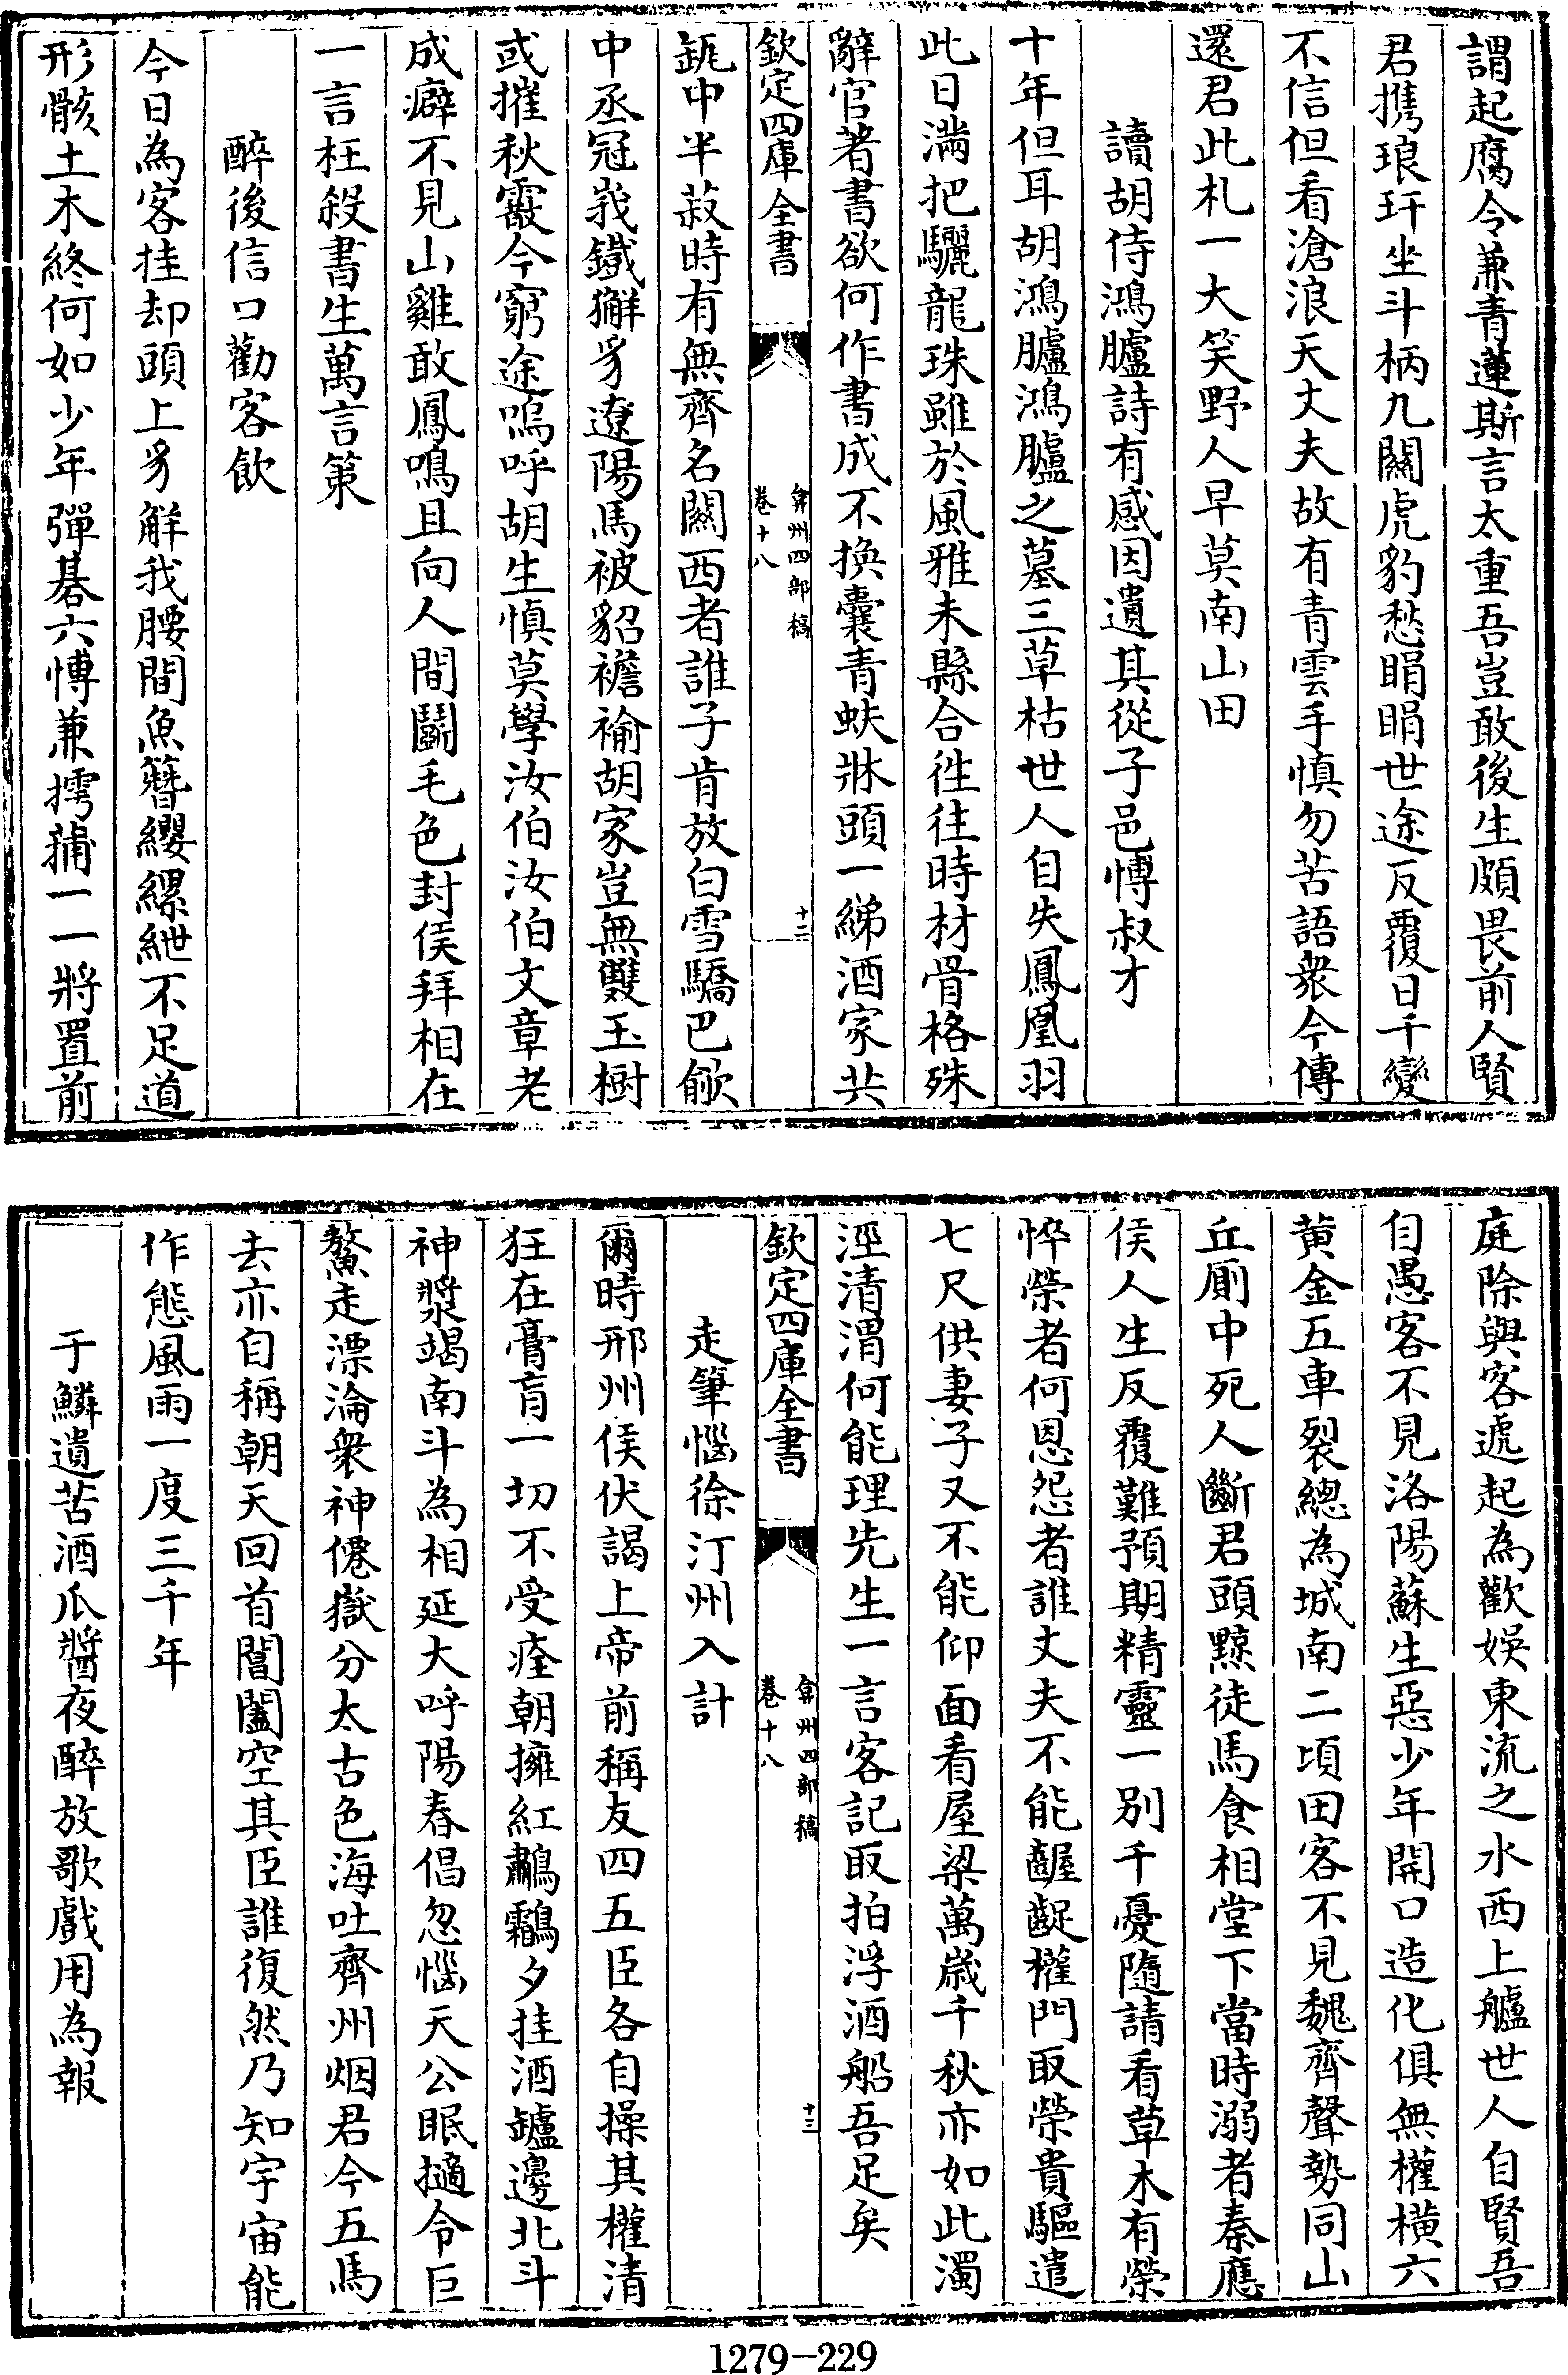 謂起腐令兼青蓮斯言太重吾豈敢後生頗畏前人賢
君携琅玕坐斗柄九關虎豹愁睊睊世途反覆日千變
不信但看滄浪天丈夫故有青雲手慎勿苦語衆今傳
還君此札一大笑野人早莫南山田
讀胡侍鴻臚詩有感因遺其從子邑愽叔才
十年但耳胡鴻臚鴻臚之墓三草枯世人自失鳳凰羽
此日滿把驪龍珠雖於風雅未縣合徃往時材骨格殊
辭官著書欲何作書成不換囊青蚨牀頭一綈酒家共
欽定四庫全書
弇州四部稿
卷十八
十二
瓻中半菽時有無齊名關西者誰子肯放白雪驕巴歈
中丞冠峩鐵獬豸遼陽馬被貂襜褕胡家豈無雙玉樹
或摧秋霰今窮途嗚呼胡生慎莫學汝伯汝伯文章老
成癖不見山雞敢鳳鳴且向人間鬬毛色封侯拜相在
一言枉殺書生萬言策
醉後信口勸客飲
今日為客挂却頭上豸解我腰間魚簪纓縲紲不足道
形骸土木終何如少年彈棊六愽兼摴蒱一一將置前
庭除與客遞起為歡娱東流之水西上艫世人自賢吾
自愚客不見洛陽蘇生惡少年開口造化俱無權横六
黄金五車裂總為城南二頃田客不見魏齊聲勢同山
丘厠中死人斷君頭黥徒馬食相堂下當時溺者秦應
侯人生反覆難預期精靈一別千憂隨請看草木有榮
悴榮者何恩怨者誰丈夫不能齷齪權門取榮貴驅遣
七尺供妻子又不能仰面看屋梁萬歲千秋亦如此濁
涇清渭何能理先生一言客記取拍浮酒船吾足矣
欽定四庫全書
弇州四部稿
卷十八
十三
走筆惱徐汀州入計
爾時邢州侯伏謁上帝前稱友四五臣各自操其權清
狂在膏肓一切不受痊朝擁紅鷫鸘夕挂酒罏邊北斗
神漿竭南斗為相延大呼陽春倡忽惱天公眠擿令巨
鰲走漂淪衆神僊嶽分太古色海吐齊州烟君今五馬
去亦自稱朝天回首閶闔空其臣誰復然乃知宇宙能
作態風雨一度三千年
于鱗遺苦酒爪醬夜醉放歌戲用為報
1279-229